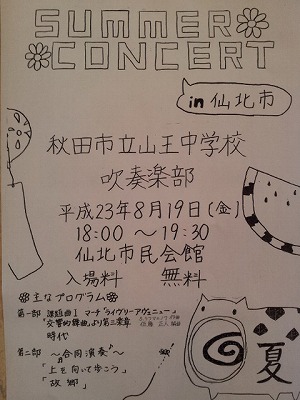 SUMMER
CONCERT
in 仙北市
秋田市立山王中学校
吹奏楽部
平成23年8月19日(金)
18:00 〜 19:30
仙北市民会館
入場料 無料
主なプログラム
第一部 課題曲Ⅰ マーチ「ライヴリーアヴェニュー」
「交響的舞曲」より第三楽章
時代
第二部 〜合同演奏〜
「上を向いて歩こう」
「故郷」
夏